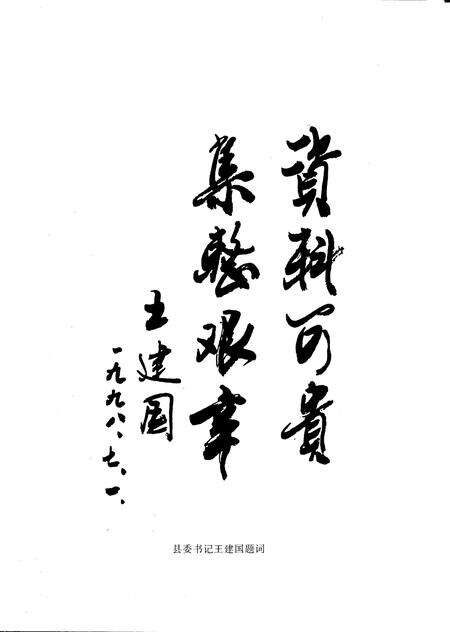 资料可贵
集整艰辛
王建国
一九九八、七、一、
县委书记王建国题词